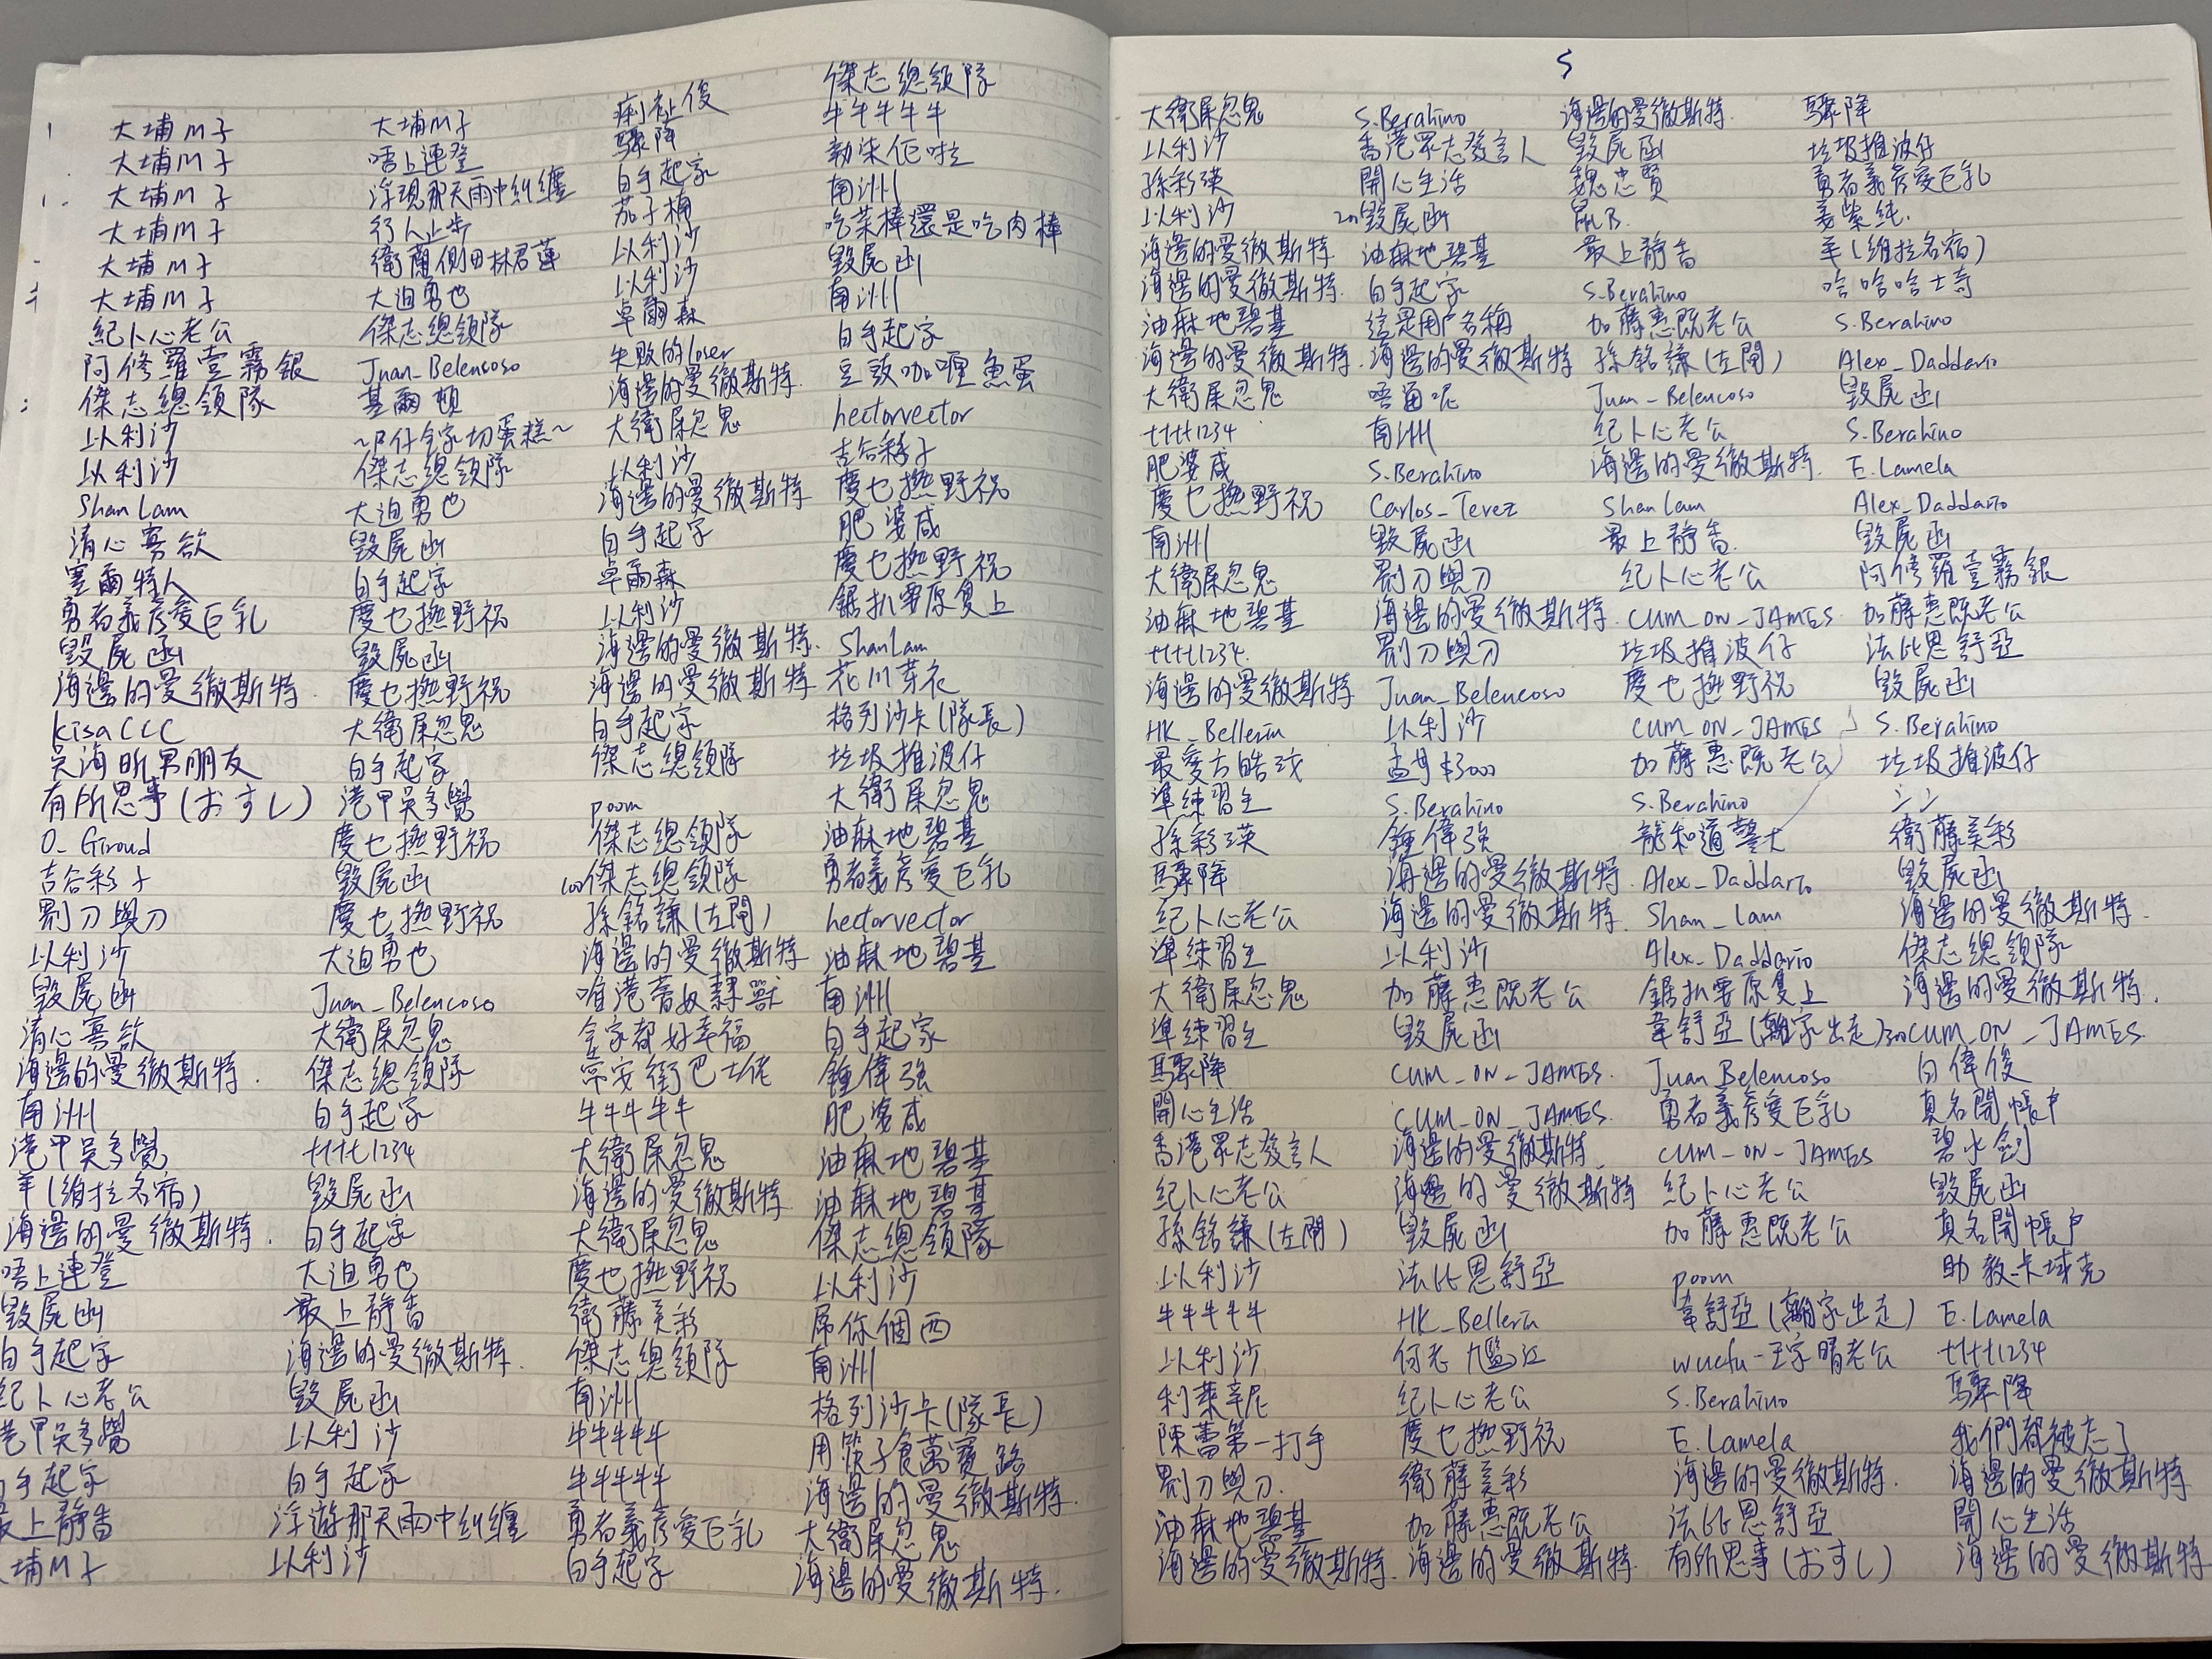 大埔M子
大埔M子
大埔M子
大埔M子
大埔M子
大埔M子
紀卜心老公
阿修羅壹霧銀
傑志總領隊
以利沙
以利沙
Shan Lam
清心寡欲
塞爾特人
勇者義彥愛巨乳
毀屍函
海邊的曼徹斯特.
kisaCCC
吳海昕男朋友
有所思事(おすし)
O_Giroud
吉谷彩子
劏刀與刀
以利沙
毀屍函
清心寡欲
海邊的曼徹斯特.
南洲
港甲吳多覺
羊(維拉名宿)
海邊的曼徹斯特.
唔上連登
毀屍函
白手起家
紀卜心老公
港甲吳多覺
白手起家
最上靜香
大埔M子
大埔M子
唔上連登
浮現那天雨中糾纏
行人止步
衛蘭側田林君蓮
大迫勇也
傑志總領隊
Juan_Belencoso
基爾頓
~P仔全家切蛋糕~
傑志總領隊
大迫勇也
毀屍函
白手起家
慶乜撚野祝
毀屍函
慶乜撚野祝
大衛屎忽鬼
白手起家
港甲吳多覺
慶乜撚野祝
毀屍函
慶乜撚野祝
大迫勇也
Juan_Belencoso
大衛屎忽鬼
傑志總領隊
白手起家
tttt1234
毀屍函
白手起家
大迫勇也
最上靜香
海邊的曼徹斯特.
毀屍函
以利沙
白手起家
浮遊那天雨中糾纏
以利沙
驟降
白手起家
茄子桶
以利沙
以利沙
卓爾森
失敗的loser
海邊的曼徹斯特.
大衛屎忽鬼
以利沙
海邊的曼徹斯特
白手起家
卓爾森
以利沙
海邊的曼徹斯特.
海邊的曼徹斯特
白手起家
傑志總領隊
poom
傑志總領隊
100傑志總領隊
孫銘謙(左閘)
海邊的曼徹斯特
唯港薈奴隸獸
全家都好幸福
常安街巴士佬
牛牛牛牛牛
大衛屎忽鬼
海邊的曼徹斯特
大衛屎忽鬼
慶乜撚野祝
衛藤美彩
傑志總領隊
南洲
牛牛牛牛牛
牛牛牛牛牛
勇者義彥愛巨乳
白手起家
傑志總領隊
牛牛牛牛牛
勒柒佢啦
南洲
吃菜棒還是吃肉棒
毀屍函
南洲
白手起家
豆豉咖喱魚蛋
hectorvector
吉谷彩子
慶乜撚野祝
肥婆咸
慶乜撚野祝
鋸扒要原隻上
Shan Lam
花川芽衣
格列沙卡(隊長)
垃圾推波仔
大衛屎忽鬼
油麻地碧基
勇者義彥愛巨乳
hectorvector
油麻地碧基
南洲
白手起家
鍾偉強
肥婆咸
油麻地碧基
油麻地碧基
傑志總領隊
以利沙
屌你個西
南洲
格列沙卡(隊長)
用筷子食萬寶路
海邊的曼徹斯特.
大衛屎忽鬼
海邊的曼徹斯特.
5
大衛屎忽鬼
以利沙
孫彩瑛
以利沙
海邊的曼徹斯特
海邊的曼徹斯特.
油麻地碧基
海邊的曼徹斯特.
大衛屎忽鬼
tttt1234
肥婆咸
慶乜撚野祝
南洲
大衛屎忽鬼
油麻地碧基
tttt1234.
海邊的曼徹斯特
HK_Bellerin
最愛方皓玟
準練習生
孫彩瑛
驟降
紀卜心老公
準練習生
大衛屎忽鬼
準練習生
驟降
開心生活
香港眾志發言人
紀卜心老公
孫銘謙(左閘)
以利沙
牛牛牛牛牛
以利沙
利萊辛尼
陳蕾第一打手
劏刀與刀.
油麻地碧基
海邊的曼徹斯特.
S.Berahino
香港眾志發言人
開心生活
200毀屍函
油麻地碧基
白手起家
這是用戶名稱
海邊的曼徹斯特
唔通呢
南洲
S.Berahino
Carlos_Tevez
毀屍函
劏刀與刀
海邊的曼徹斯特.
劏刀與刀
Juan_Belencoso
以利沙
孟母$3000
S.Berahino
鍾偉強
海邊的曼徹斯特.
海邊的曼徹斯特.
以利沙
加藤惠既老公
毀屍函
CUM_ON_JAMES.
CUM_ON_JAMES.
海邊的曼徹斯特
海邊的曼徹斯特
毀屍函
法比恩舒亞
HK_Bellerin
紀卜心老公
慶乜撚野祝
衛藤美彩
加藤惠既老公
海邊的曼徹斯特.
海邊的曼徹斯特.
毀屍函
魏忠賢
鼠B.
最上靜香
S.Berahino
加藤惠既老公
孫銘謙(左閘)
Juan_Belencoso
紀卜心老公
海邊的曼徹斯特.
Shan Lam
最上靜香.
紀卜心老公
CUM_ON_JAMES.
垃圾推波仔
慶乜撚野祝
CUM_ON_JAMES
加藤惠既老公
S.Berahino
龍和道警犬
Alex_Daddario
Shan_Lam
Alex_Daddario
鋸扒要原隻上
韋舒亞(離家出走)
Juan Belencoso
勇者義彥愛巨乳
CUM_ON_JAMES
紀卜心老公
加藤惠既老公
poom
韋舒亞(離家出走)
wucfu-王宇晴老公
S.Berahino
E.Lamela
海邊的曼徹斯特.
法比恩舒亞
有所思事(おすし)
驟降
垃圾推波仔
勇者義彥愛巨乳
姜紫純.
羊(維拉名宿)
哈哈哈士奇
S.Berahino
Alex_Daddario
毀屍函
S.Berahino
E.Lamela
Alex_Daddario
毀屍函
阿修羅壹霧銀
加藤惠既老公
法比恩舒亞
毀屍函
S.Berahino
垃圾推波仔
シン
衛藤美彩
毀屍函
海邊的曼徹斯特.
傑志總領隊
海邊的曼徹斯特.
300CUM_ON_JAMES.
白偉俊
真名開帳戶
碧水劍
毀屍函
真名開帳戶
助教卡域克
E.Lamela
tttt1234
驟降
我們都被忘了
海邊的曼徹斯特
開心生活
海邊的曼徹斯特